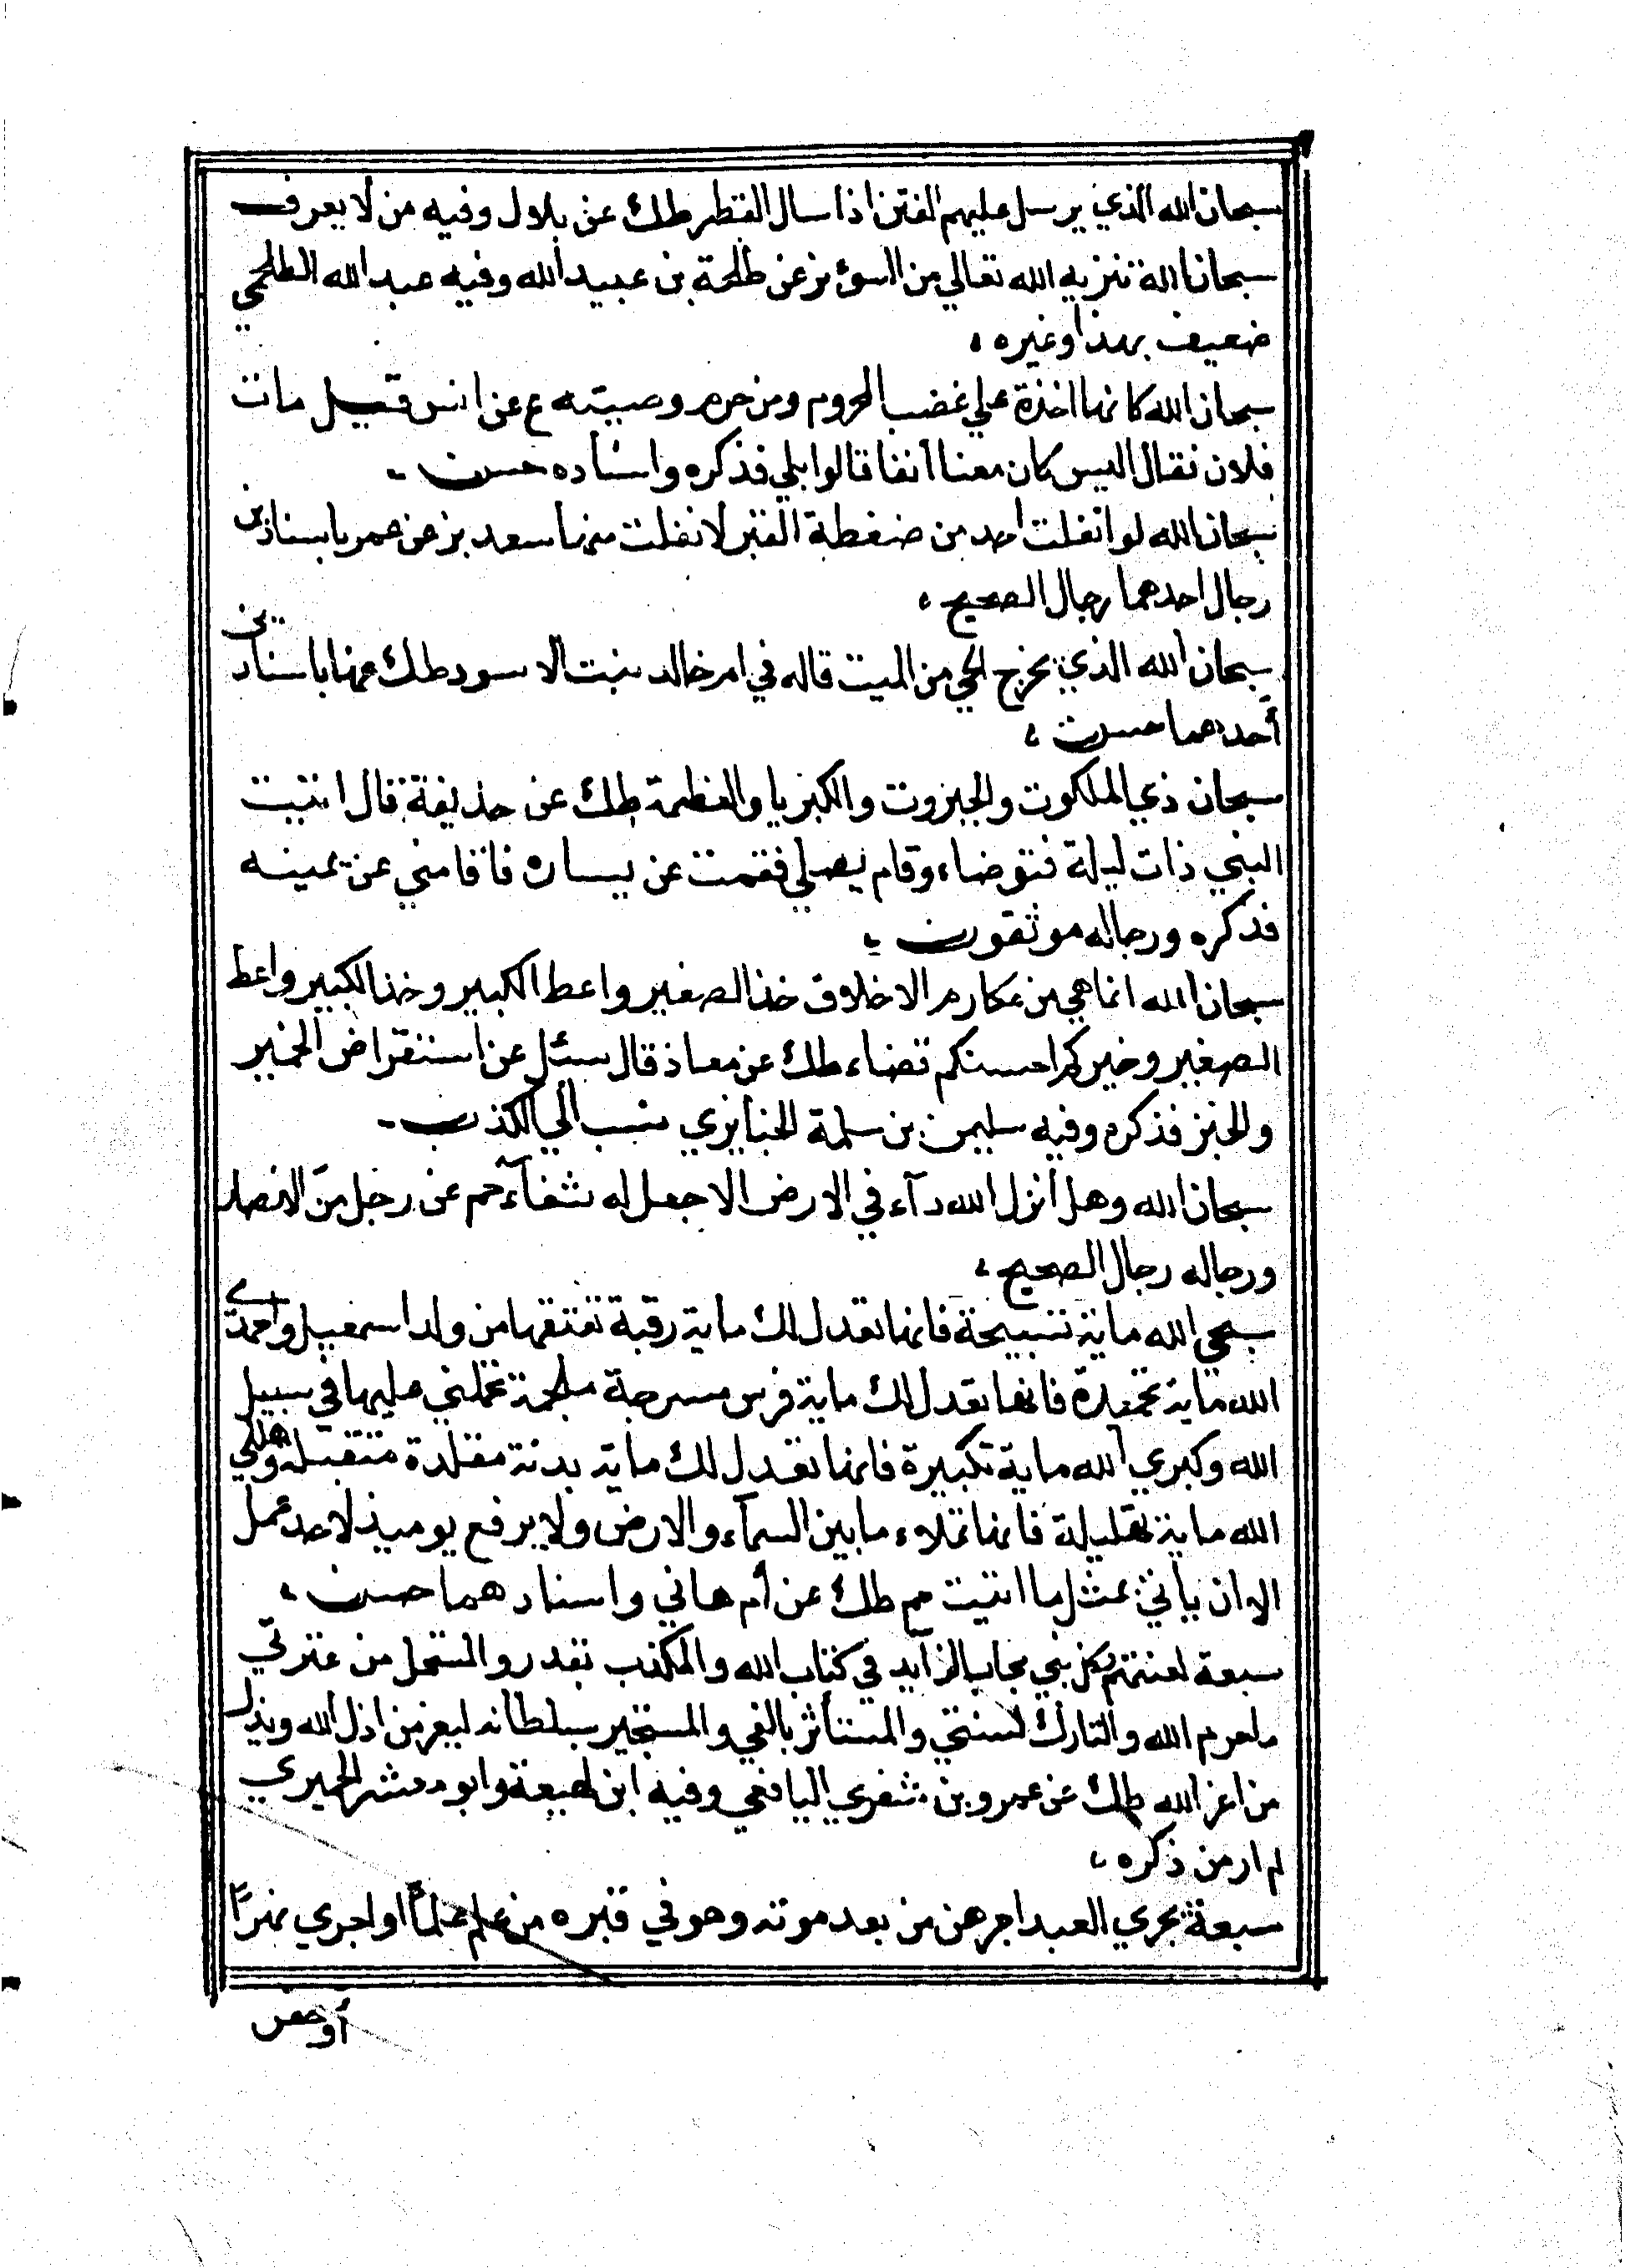 سبحان الله الذي يرسل عليهم الفتن اذا سال القطر طك عن بلال وفيه من لا يعرف
سبحان الله تنزيه الله تعالي من السوء بز عن طلحة بن عبيد الله وفيه عبد الله الطلحي
ضعيف بهذا وغيره ،
سبحان الله كانها اخذة علي غضب المحروم من حرم وصيته ع عن انس قيل مات
فلان فقال اليس كان معنا آنفا قالوا بلي فذكره واسناده حسن -
سبحان الله لو انفلت احد من ضغطة القبر لانفلت منها سعد بز عن عمر باسنادين
رجال احدهما رجال الصحيح ،
سبحان الله الذي يخرج الحي من الميت قاله في ام خالد بنت الاسود طك عنها باسنادين
أحدهما حسن ،
سبحان ذي الملكوت والجبروت والكبريا والعظمة طك عن حذيفة قال اتيت
النبي ذات ليلة فتوضاء وقام يصلي فقمت عن يساره فاقامني عن يمينه
فذكره ورجاله موثقون ،
سبحان الله انما هي من مكارم الاخلاق خذ الصغير واعط الكبير وخذ الكبير واعط
الصغير وخيركم احسنكم قضاء طك عن معاذ قال سئل عن استقراض الخمير
والخبز فذكره وفيه سليمن بن سلمة الخبايزي نسب الي الكذب -
سبحان الله وهل انزل الله دآء في الارض الا جعل له شفآء حم عن رجل من الانصار
ورجاله رجال الصحيح ،
سبحي الله ماية تسبيحة فانها تعدل لك ماية رقبة تعتقها من ولد اسمعيل واحمدي
الله ماية تحميدة فانها تعدل لك ماية فرس مسرجة ملجمة تحملني عليها في سبيل
الله وكبري الله ماية تكبيرة فانها تعدل لك ماية بدنة مقلدة متقبلة وهللي
الله ماية تهليلة فانها تملاء ما بين السمآء والارض ولا يرفع يوميذ لاحد عمل
الا ان يأتي بمثل ما اتيت حم طك عن أم هاني واسنادهما حسن ،
سبعة لعنتهم وكل نبي مجاب الزايد في كتاب الله والمكذب بقدر والمستحل من عترتي
ما حرم الله والتارك لسنتي والمستأثر بالفي والمتجبر بسلطانه ليعز من اذل الله ويذل
من اعز الله طك عن عمرو بن شغوي اليافعي وفيه ابن لهيعة وابو معشر الحميري
لم ار من ذكره ،
سبعة يجري للعبد اجرهن من بعد موته وهو في قبره من علم علماً او اجري نهراً
أو حفر